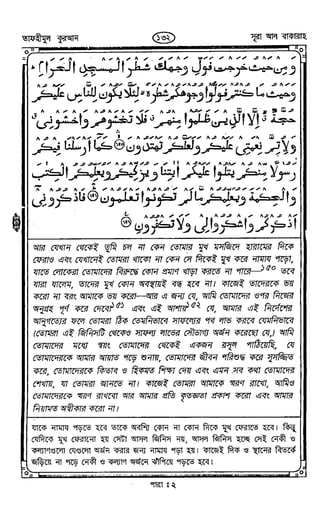 তাফহীমুল কুরআন
১৩২
সূরা আল বাকারাহ
وَمِنْ حَيْثُ خَرَجْتَ فَوَلِّ وَجْهَكَ شَطْرَ الْمَسْجِدِ الْحَرَامِ ؕ
وَحَيْثُ مَا كُنْتُمْ فَوَلُّوْا وُجُوْهَكُمْ شَطْرَهٗ ۙ لِئَلَّا يَكُوْنَ لِلنَّاسِ عَلَيْكُمْ
حُجَّةٌ ۙ اِلَّا الَّذِيْنَ ظَلَمُوْا مِنْهُمْ ۗ فَلَا تَخْشَوْهُمْ وَاخْشَوْنِيْ ۗ
وَلِاُتِمَّ نِعْمَتِيْ عَلَيْكُمْ وَلَعَلَّكُمْ تَهْتَدُوْنَ ۙ كَمَاۤ اَرْسَلْنَا فِيْكُمْ
رَسُوْلًا مِّنْكُمْ يَتْلُوْا عَلَيْكُمْ اٰيٰتِنَا وَيُزَكِّيْكُمْ وَيُعَلِّمُكُمُ الْكِتٰبَ
وَالْحِكْمَةَ وَيُعَلِّمُكُمْ مَّا لَمْ تَكُوْنُوْا تَعْلَمُوْنَ ۛ فَاذْكُرُوْنِيْۤ
اَذْكُرْكُمْ وَاشْكُرُوْا لِيْ وَلَا تَكْفُرُوْنِ
আর যেখান থেকেই তুমি চল না কেন তোমার মুখ মসজিদে হারামের দিকে
ফেরাও এবং যেখানেই তোমরা থাকো না কেন সে দিকেই মুখ করে নামায পড়ো,
যাতে লোকেরা তোমাদের বিরুদ্ধে কোন প্রমাণ খাড়া করতে না পারে—১৫০ তবে
যারা যালেম, তাদের মুখ কোন অবস্থায়ই বন্ধ হবে না। কাজেই তাদেরকে ভয়
করো না বরং আমাকে ভয় করো—আর এ জন্য যে, আমি তোমাদের ওপর নিজের
অনুগ্রহ পূর্ণ করে দেবো এবং এই আশায় যে, আমার এই নির্দেশের
আনুগত্যের ফলে তোমরা ঠিক তেমনিভাবে সাফল্যের পথ লাভ করবে যেমনিভাবে
(তোমরা এই জিনিসটি থেকেও সাফল্য লাভের সৌভাগ্য অর্জন করেছো যে,) আমি
তোমাদের মধ্যে স্বয়ং তোমাদের থেকেই একজন রসূল পাঠিয়েছি, যে
তোমাদেরকে আমার আয়াত পড়ে শুনায়, তোমাদের জীবন পরিশুদ্ধ করে সুসজ্জিত
করে, তোমাদেরকে কিতাব ও হিকমত শিক্ষা দেয় এবং এমন সব কথা তোমাদের
শেখায়, যা তোমরা জানতে না। কাজেই তোমরা আমাকে স্মরণ রাখো, আমিও
তোমাদেরকে স্মরণ রাখবো আর আমার প্রতি কৃতজ্ঞতা প্রকাশ করো এবং আমার
নিয়ামত অস্বীকার করো না।
যাকে নামায পড়তে হবে তাকে অবশ্যি কোন না কোন দিকে মুখ ফেরাতে হবে। কিন্তু
যেদিকে মুখ ফেরানো হয় সেটা আসল জিনিস নয়, আসল জিনিস হচ্ছে সেই নেকী ও
কল্যাণগুলো যেগুলো অর্জন করার জন্য নামায পড়া হয়। কাজেই দিক ও স্থানের বিতর্কে
জড়িয়ে না পড়ে নেকী ও কল্যাণ অর্জনে ঝাঁপিয়ে পড়তে হবে।
পারা : ২